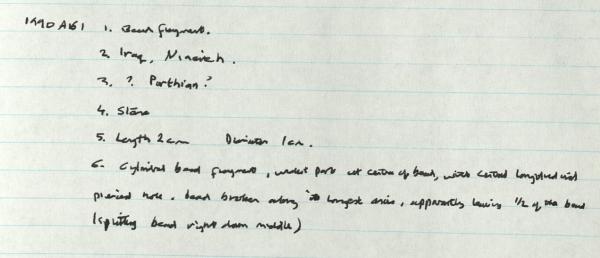 1990 A161 1. Bead fragment.
2. Iraq, Nineveh.
3. ? Parthian?
4. Stone
5. Length 2cm Diameter 1cm.
6. Cylindrical bead fragment, widest part at centre of bead, with central longitudinal
pierced hole. bead broken along longest axis, apparently leaving 1/2 of the bead
(splitting bead right down middle)